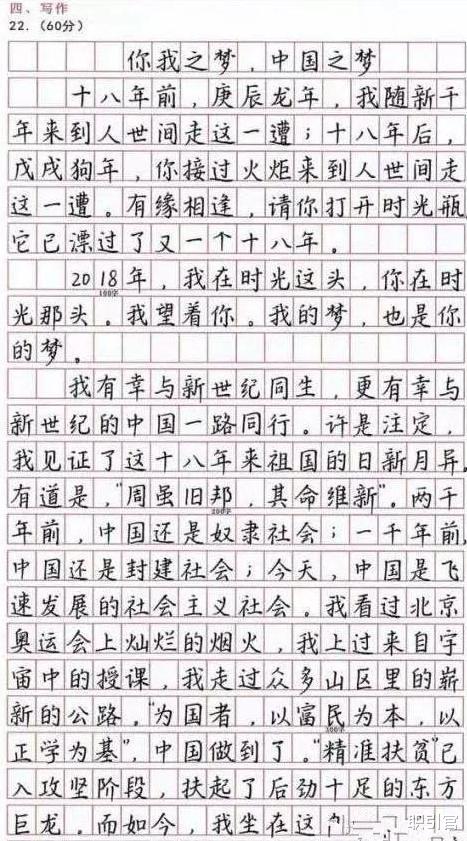 四、写作
22.（60分）
你我之梦，中国之梦
十八年前，庚辰龙年，我随新千
年来到人世间走这一遭；十八年后，
戊戌狗年，你接过火炬来到人世间走
这一遭。有缘相逢，请你打开时光瓶，
它已漂过了又一个十八年。
2018年，我在时光这头，你在时
100字
光那头。我望着你。我的梦，也是你
的梦。
我有幸与新世纪同生，更有幸与
新世纪的中国一路同行。许是注定，
我见证了这十八年来祖国的日新月异。
有道是，“周虽旧邦，其命维新”。两千
200字
年前，中国还是奴隶社会；一千年前，
中国还是封建社会；今天，中国是飞
速发展的社会主义社会。我看过北京
奥运会上灿烂的烟火，我上过来自宇
宙中的授课，我走过众多山区里的崭
新的公路。“为国者，以富民为本，以
300字
正学为基”，中国做到了。“精准扶贫”已
入攻坚阶段，扶起了后劲十足的东方
巨龙。而如今，我坐在这
职引官